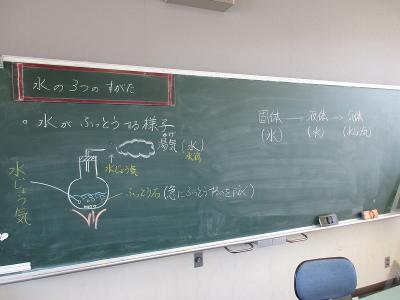 水の3つのすがた
○ 水がふっとうする様子
ゆげ
湯気(水)
水滴
水じょう気
水じょう気
ふっとう石(急にふっとうするのを防ぐ)
固体 → 液体 → 気体
(氷) (水) (水じょう気)